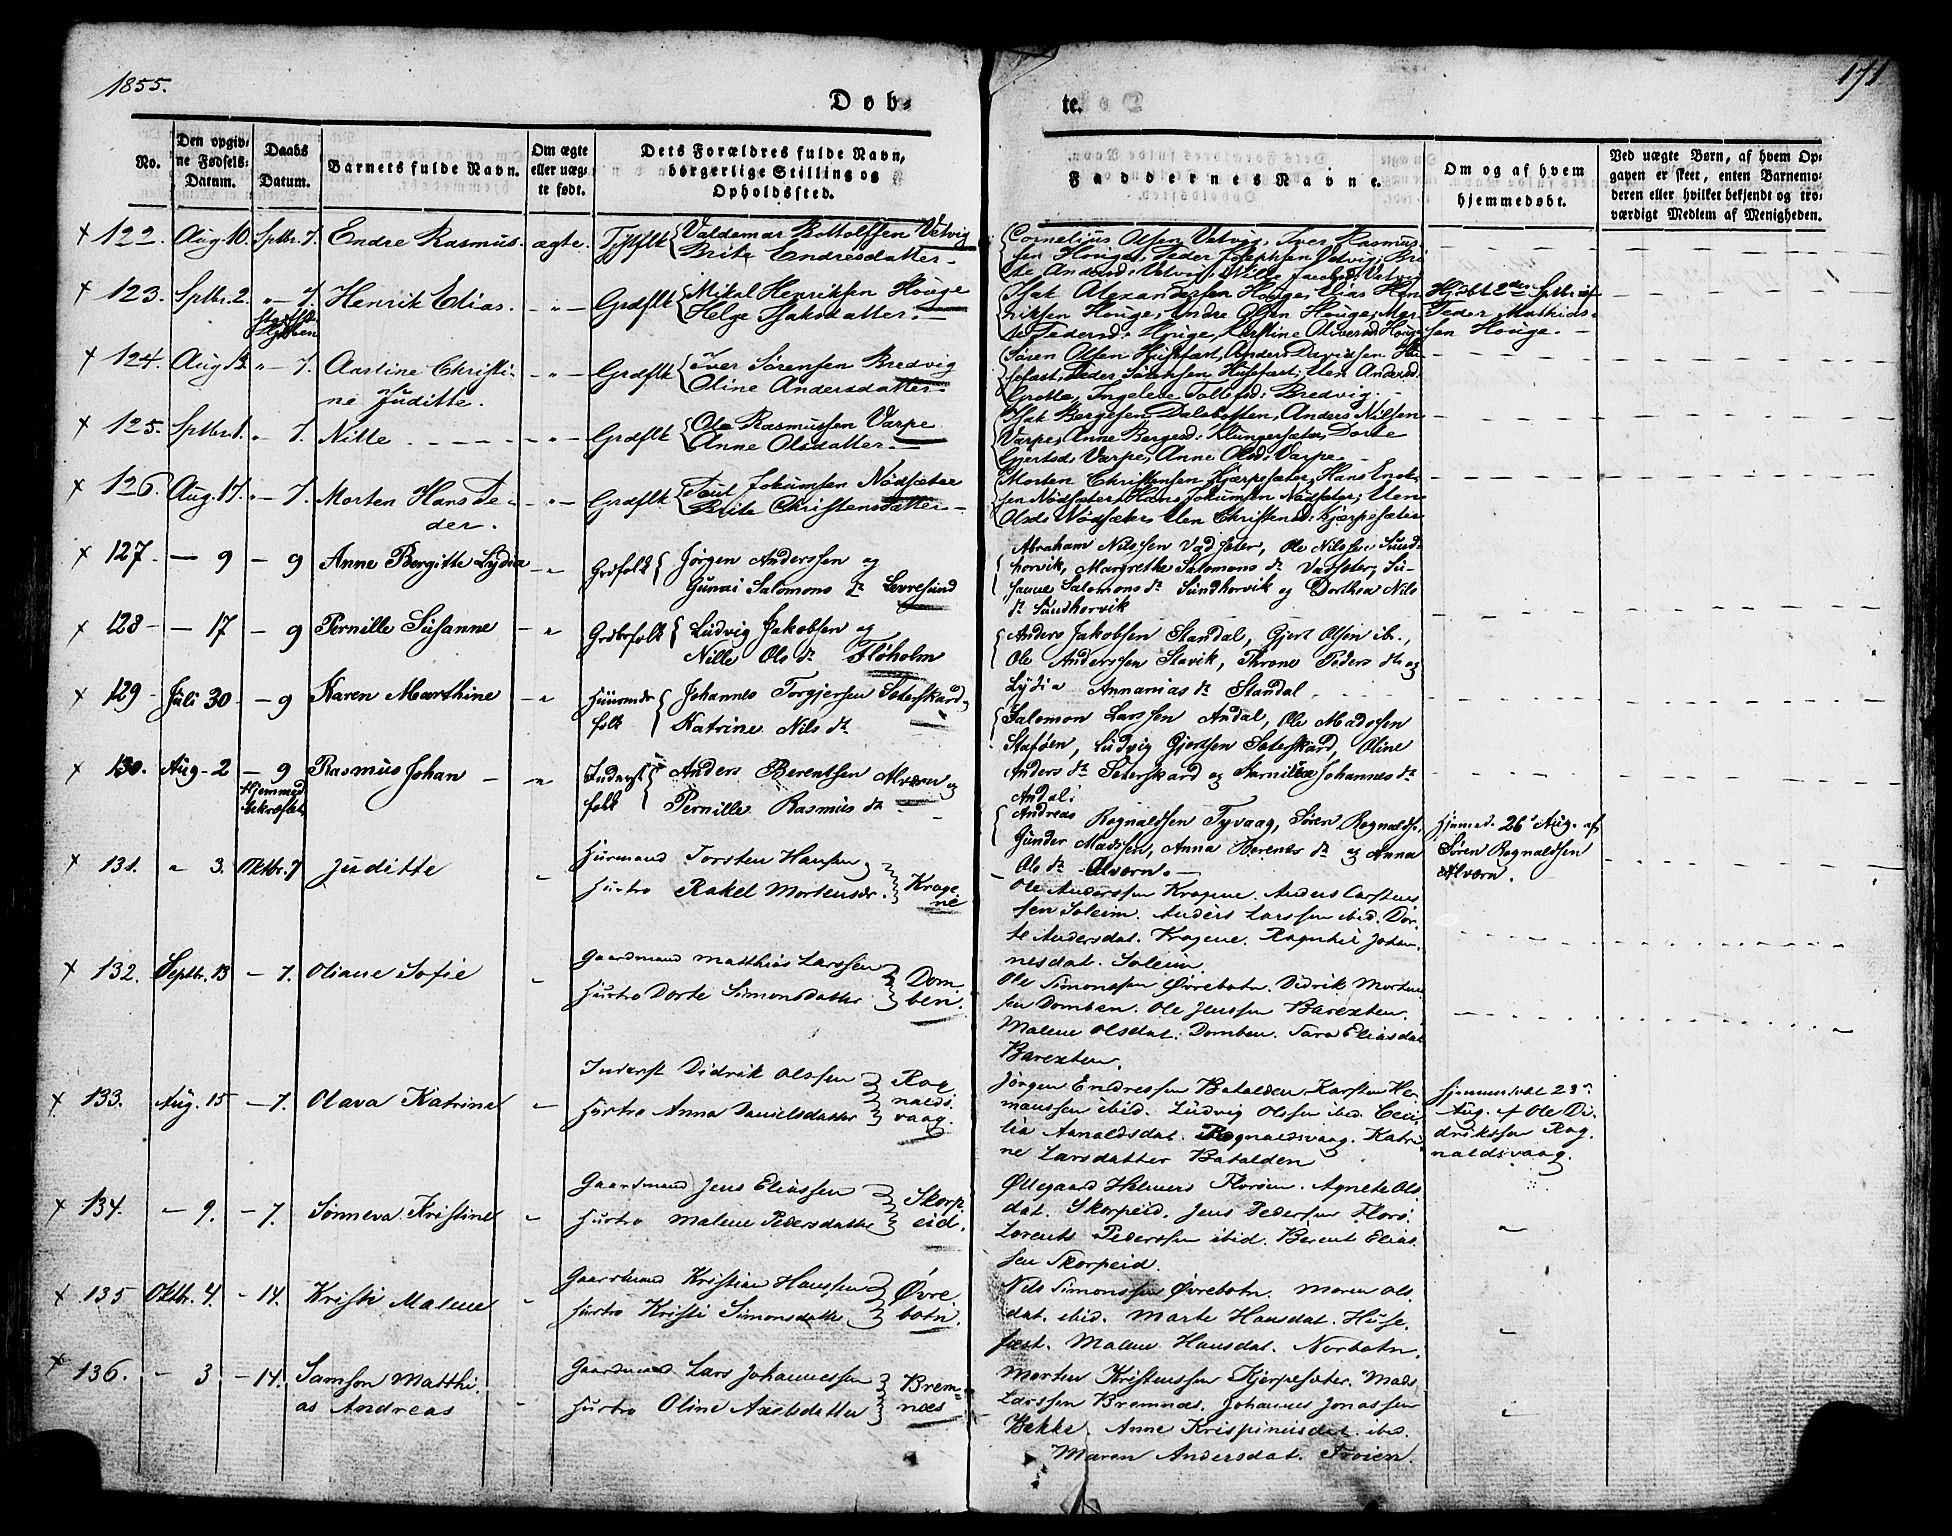 1855.
171
Døb-
te.
No.
Den opgiv-
ne Fødsels-
Datum.
Daabs
Datum.
Barnets fulde Navn.
Om ægte
eller uæg-
te født.
Dets Forældres fulde Navn,
borgerlige Stilling og
Opholdssted.
Faddernes Navne.
Om og af hvem
hjemmedøbt.
Ved uægte Børn, af hvem Op-
gaven er skeet, enten Barnemo-
deren eller hvilket bekjendt og tro-
værdigt Medlem af Menigheden.
122. Aug 10. Sptbr. 7. Endre Rasmus. ægte. Valdemar Bottolfsen Vetvig
Brite Endresdatter.
Cornelius Olsen Vetvig, Iver Rasmus-
sen Houge, Peder Josephsen Vetvig, Bri-
te Andersd: Vetvig, Nille Jacobsd: Vetvig
123. Sptbr. 2. " - 7. Henrik Elias. - " - Grdflk Mikal Henriksen Houge
Helge Isaksdatter.
Isak Alexandersen Houge, Elias Hen-
riksen Houge, Endre Olsen Houge, Mer-
te Pedersd: Houge, Kirstine Oliversd: Houge
Hjdøbt 2den Sptbr. af
Peder Mathias-
sen Houge.
124. Aug 13. " - 7. Aastine Christi-
ne Juditte. - " - Grdflk Iver Sørensen Bredvig
Oline Andersdatter
Søren Olsen Husefast, Anders Davidsen Hu-
sefast, Peder Sørensen Husefast, Elen Andersd:
Grotte, Ingeleve Tollefsd: Bredvig.
125. Sptbr. 1. " - 7. Nille - " - Grdflk Ole Rasmussen Varpe
Anne Olsdatter.
Isak Bergesen Dalsbotten, Anders Nilsen
Varpe, Anne Bergesd: Klungersæter, Dorte
Gjertsd: Varpe, Anne Olsd: Varpe.
126. Aug. 17. " - 7. Morten Hans Pe-
der. - " - Grdflk Poul Jokumsen Nødsæter
Brite Christensdatter
Morten Christensen Kjærpesæter, Hans Enok-
sen Nødsæter, Hans Jokumsen Nødsæter, Elen
Olsd: Nødsæter, Elen Christensd: Kjærpesæter
127. - 9 - 9 Anne Bergitte Lydia - " Grdfolk Jørgen Anderssen og
Gunni Salomons dr Levresund
Abraham Nilssen Vadseter, Ole Nilssen Sund-
horvik, Margrethe Salomons dr Vadseter, Su-
sanne Salomons dr Sundhorvik og Dorthea Nils
dr Sundhorvik
128 - 17 - 9 Pernille Susanne - " Grdbrfolk Ludvig Jakobsen og
Nille Ols dr Floholm
Anders Jakobsen Standal, Gjert Olsen ib.,
Ole Anderssen Stavik, Throne Peders dr og
Lydia Annanias dr Standal
129 Juli 30 - 9 Karen Marthine - " Huusmdr
folk Johannes Torgjersen Seterskard
Katrine Nils dr
Salomon Larssen Andal, Ole Madssen
Staføen, Ludvig Gjertsen Seterskard, Oline
Anders dr Seterskard og Karniller Johannes dr
Andal.
130. Aug. 2 - 9 Rasmus Johan - " Inderst
folk Anders Berentsen Alværn og
Pernille Rasmus dr
Andreas Ragnaldsen Tyvaag, Søren Ragnaldsen
Gunder Madssen, Anna Berents dr og Anna
Ols dr Alværn.
Hjemmed. 26' Aug. af
Søren Ragnaldsen
Alværn.
131. " 3. Oktbr. 7 Juditte Huusmand Torsten Hansen
Hustro Rakel Mortensdr. Krage-
ne
Ole Anderssen Kragene. Anders Carsten-
sen Soleim. Anders Larssen ibid. Dor-
te Andersdat. Kragene. Ragnhil Johan-
nesdat. Soleim.
132. Septbr. 13 - 7. Oliane Sofie Gaardmand Matthias Larssen
Hustro Dorte Simonsdatter Dom-
ben.
Ole Simonssen Øvrebotn. Didrik Morten-
sen Domben. Ole Jenssen Barexten.
Malene Olsdat. Domben. Sara Eliasdat
Barexten.
133. Aug. 15 - 7. Olava Katrine Inderst Didrik Olssen
Hustro Anna Danielsdatter Rag-
nalds-
vaag.
Jørgen Endressen Batalden. Karsten Her-
manssen ibid. Ludvig Olssen ibid. Ceci-
lia Arnoldsdat. Ragnaldsvaag. Katri-
ne Larsdatter Batalden
Hjemmedøbt 23'
Aug. af Ole Di-
driksen Rag-
naldsvaag.
134. - 9. - 7. Sønneva Kristine Gaardmand Jens Eliassen
Hustro Malene Pedersdatter Skorp-
eid.
Øllegaard Helmers Florøen. Agnete Ols-
dat. Skorpeid. Jens Pedersen Florø.
Lorents Pederssen ibid. Berent Elias-
sen Skorpeid.
135 Oktbr. 4. - 14. Kristi Malene Gaardmand Kristian Hanssen
Hustro Kristi Simonsdatter Øvre-
botn.
Nils Simonssen Øvrebotn. Maren Ols-
dat. ibid. Marte Hansdat. Huse-
fast. Malene Hansdat. Norbotn.
136. - 3 - 14. Samson Matthi-
as Andreas Gaardmand Lars Johannessen
Hustro Oline Axelsdatter Brem-
næs
Morten Kristenssen Kjerpesæter. Mads
Larssen Bremnæs. Johannes Jonassen
Bekke. Anne Krispinusdat. ibid.
Maren Andersdat. Troien.